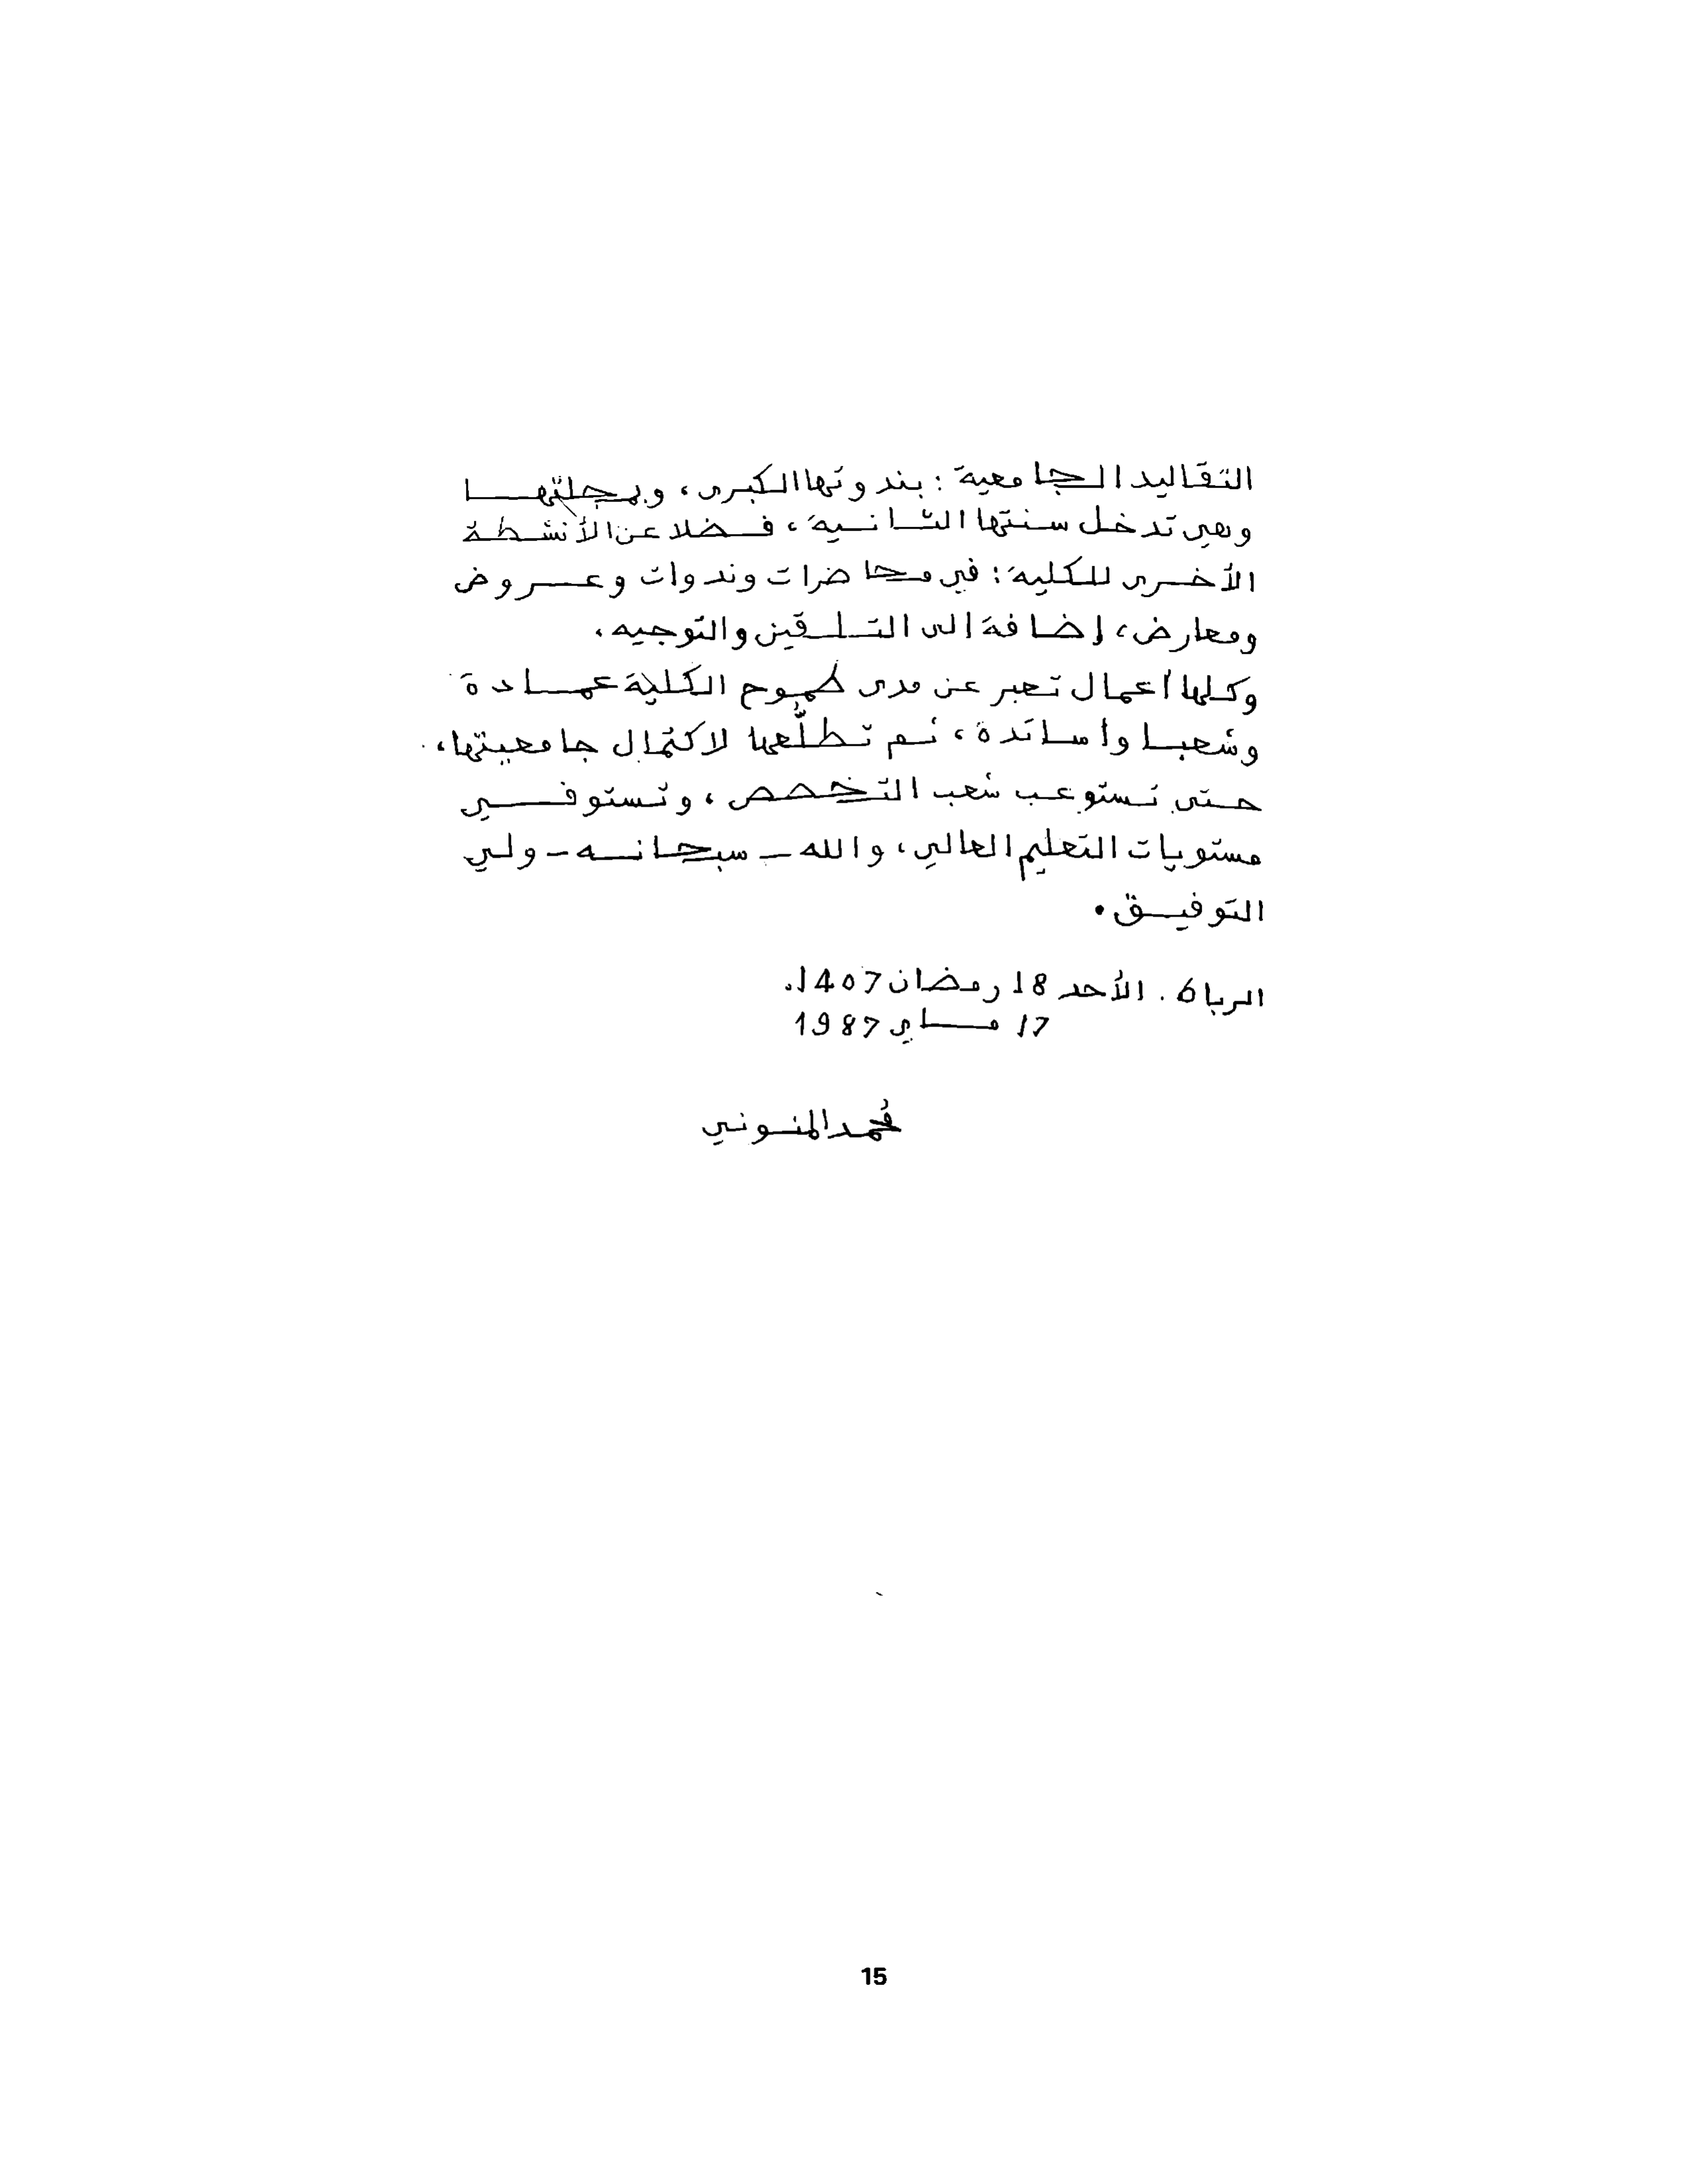 التقاليد الجامعية : بندوتها الكبرى، وبمجلتها
وهي تدخل سنتها الثانية، فضلا عن الأنشطة
الأخرى للكلية: في محاضرات وندوات وعروض
ومعارض، إضافة الى التلقين والتوجيه.
وكلها أعمال تعبر عن مدى طموح الكلية عمادة
وشعبا وأساتذة، ثم تطلّعها لاكتمال جامعيتها،
حتى تستوعب شعب التخصص، وتستوفي
مستويات التعليم العالي، والله - سبحانه - ولي
التوفيق.
الرباط. الأحد 18 رمضان 1407.
17 ماي 1987
مُحمد المنوني
15